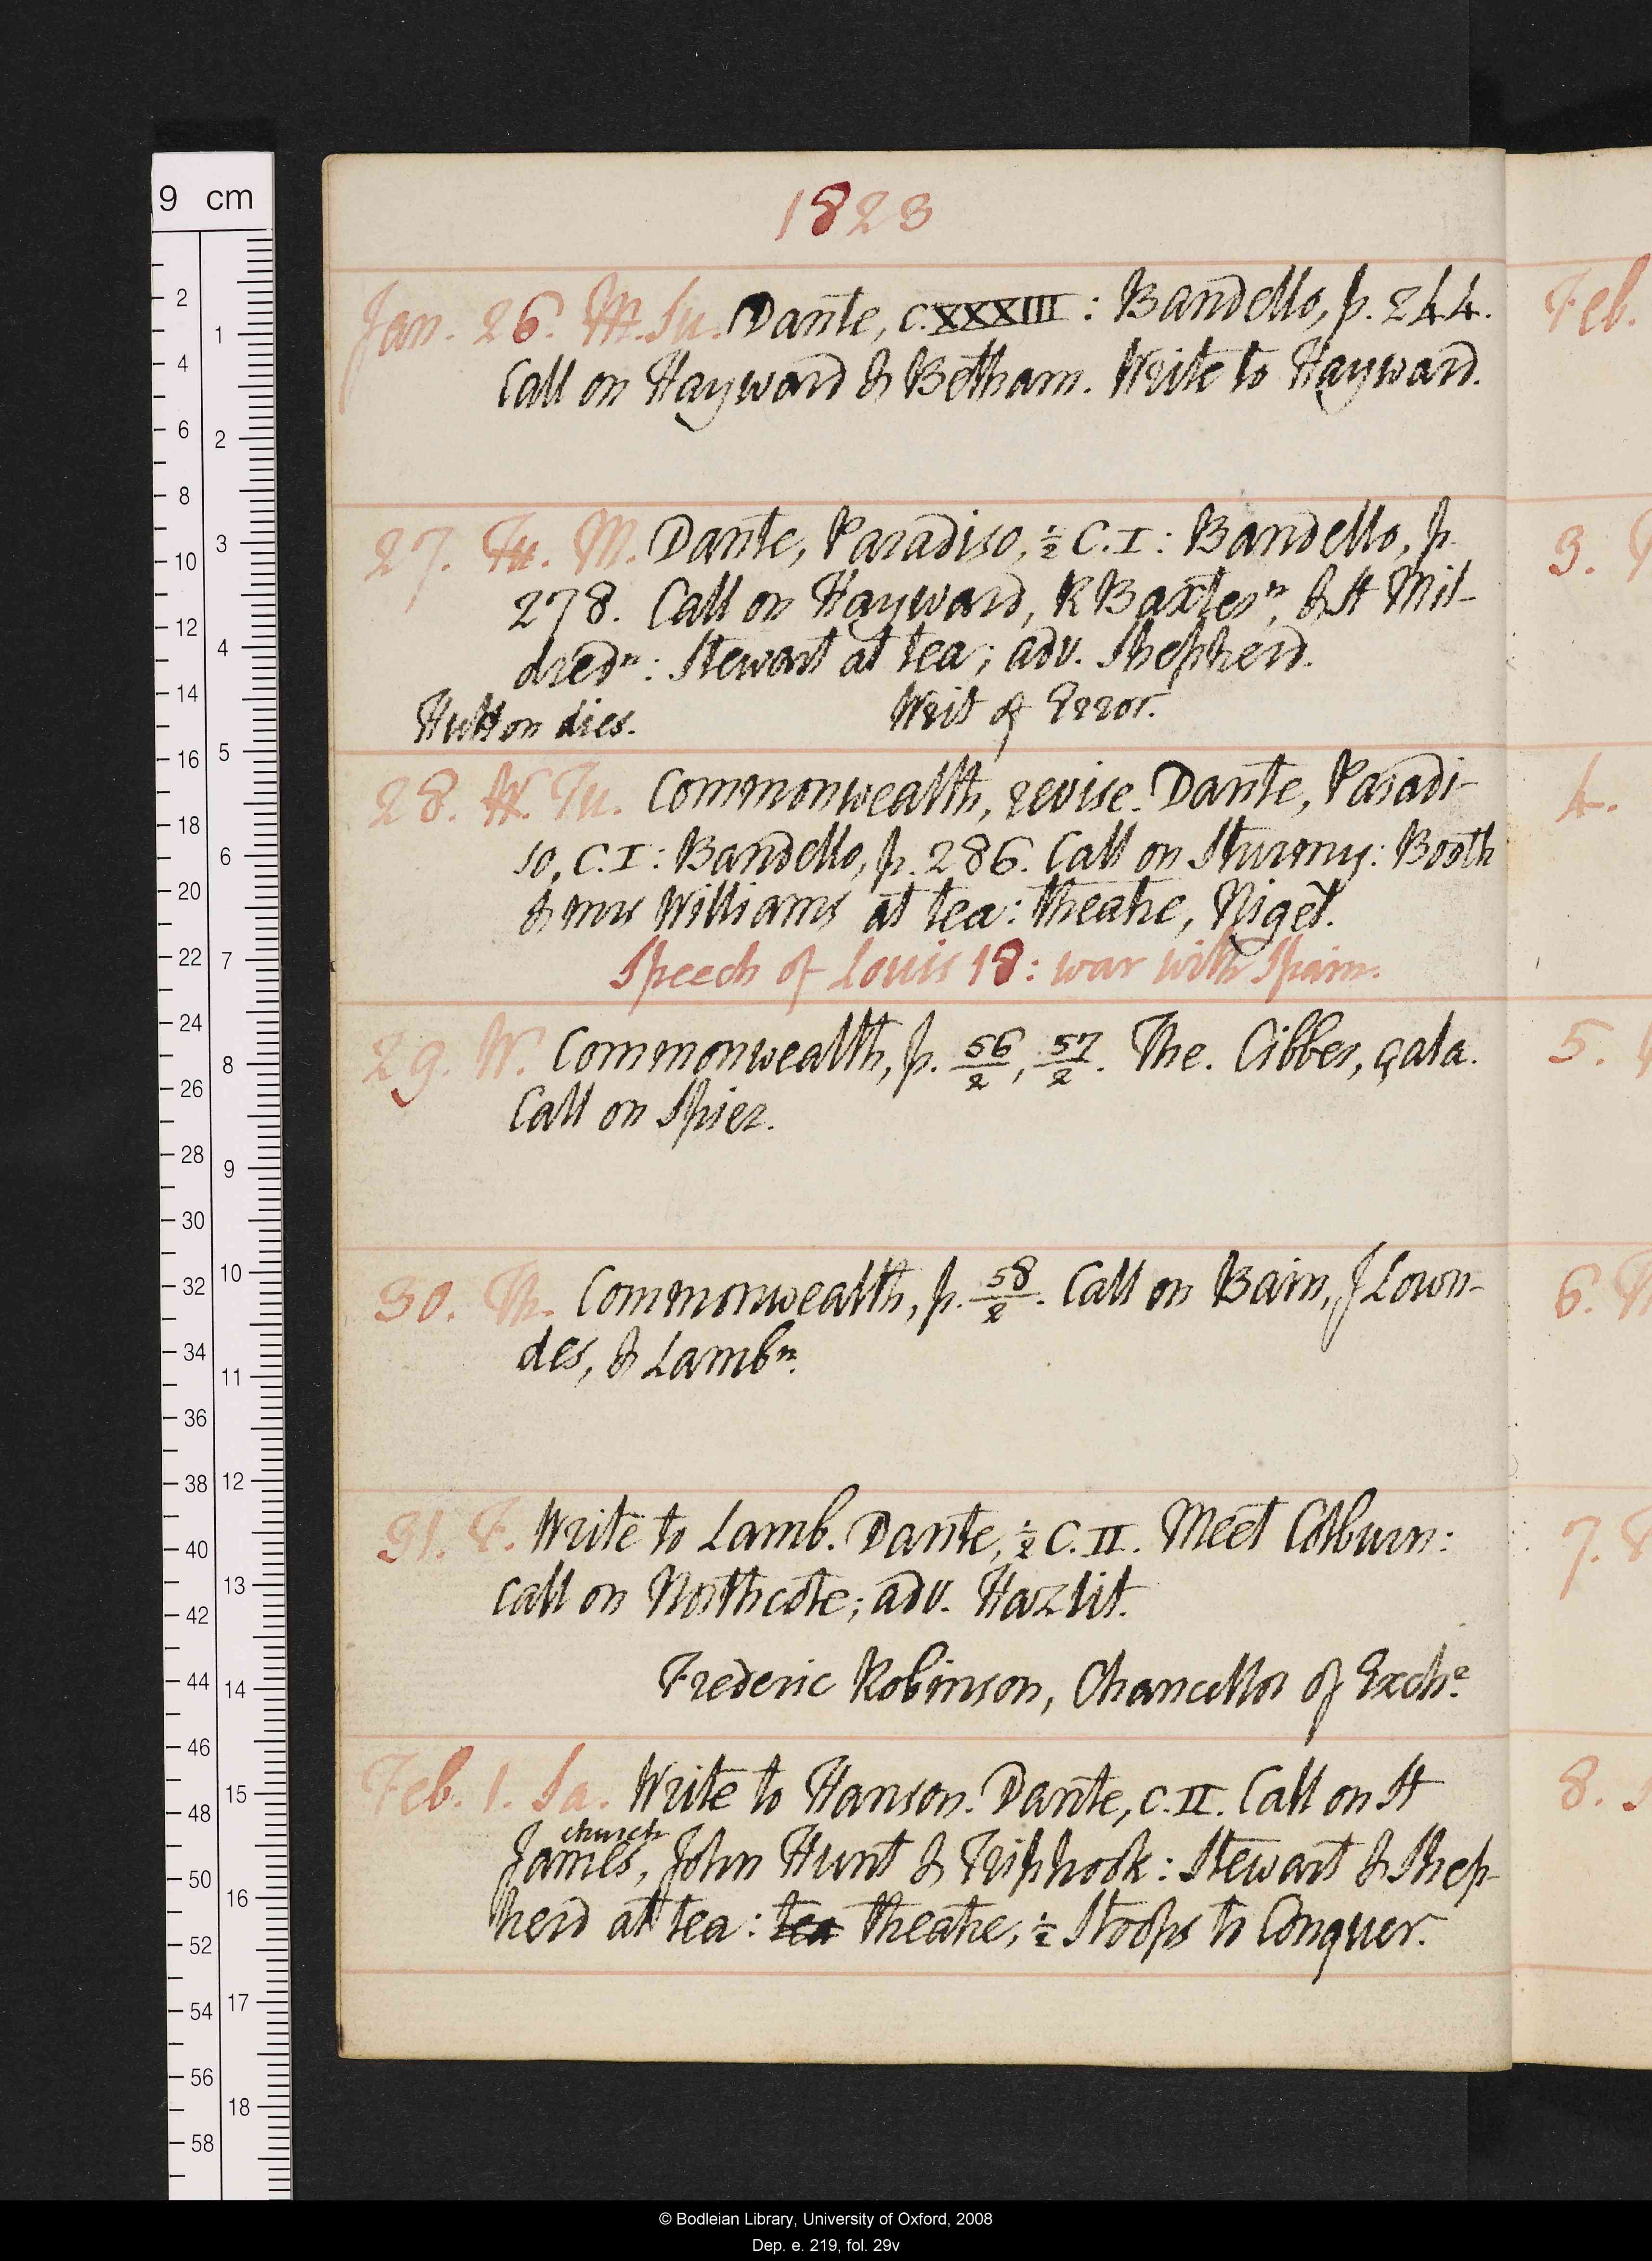 1823
Jan. 26. M. Su. Dante, C. XXXIII : Bandello, p. 244.
Call on Hayward & Betham. Write to Hayward.
27. Tu. M. Dante, Paradiso, ½ C. I : Bandello, p.
278. Call on Hayward, R Baxterⁿ, & St Mil-
dredⁿ : Stewart at tea; adv. Shepherd.
Hutton dies. Writ of Error.
28. W. Tu. Commonwealth, revise. Dante, Paradi-
so, C. I : Bandello, p. 286. Call on Sturmy : Booth
& mrs Williams at tea : theatre, Nigel.
Speech of Louis 18 : war with Spain.
29. W. Commonwealth, p. 56/2, 57/2. The. Cibber, gala.
Call on Spier.
30. Th. Commonwealth, p. 58/2. Call on Bain, J Lown-
des, & Lambⁿ.
31. F. Write to Lamb. Dante, ½ C. II. Meet Colburn :
call on Northcote; adv. Hazlit.
Frederic Robinson, Chancellor of Exchᵉ
Feb. 1. Sa. Write to Hanson. Dante, C. II. Call on St
church
James, John Hunt & Triphook : Stewart & Shep-
herd at tea : tea theatre, ½ Stoops to Conquer.
Feb.
3.
4.
5.
6.
7.
8.
9 cm
2 4 6 8 10 12 14 16 18 20 22 24 26 28 30 32 34 36 38 40 42 44 46 48 50 52 54 56 58
1 2 3 4 5 6 7 8 9 10 11 12 13 14 15 16 17 18
© Bodleian Library, University of Oxford, 2008
Dep. e. 219, fol. 29v